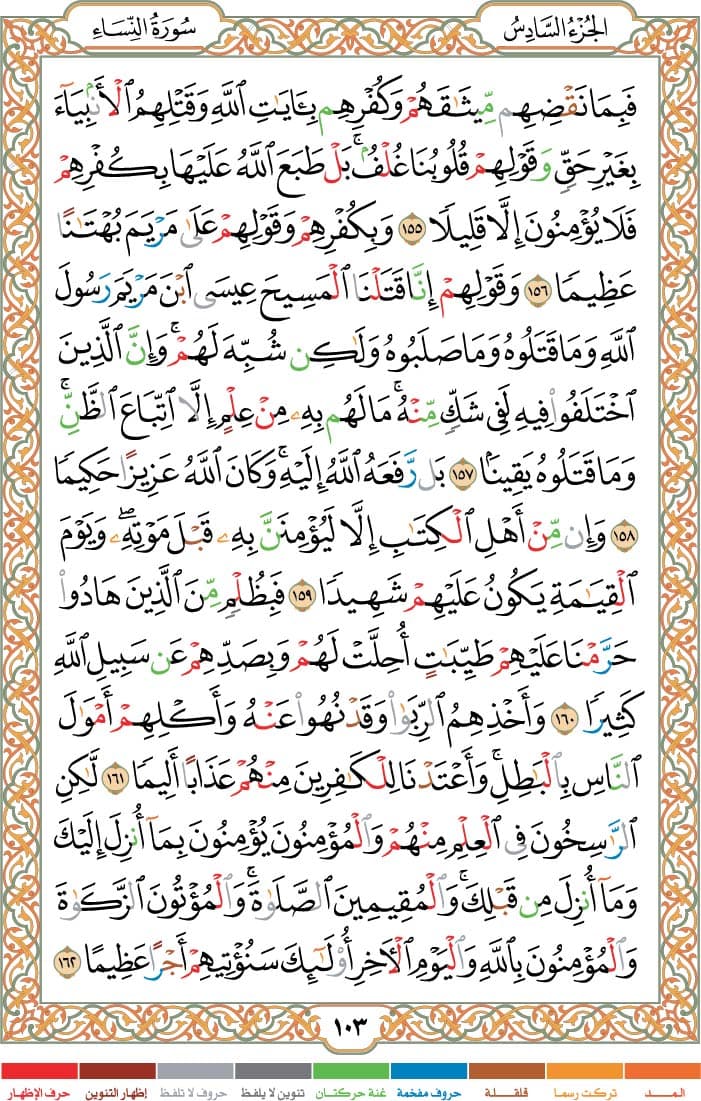 الجُزْءُ السَّادِسُ
سُورَةُ النِّسَاءِ
فَبِمَا نَقْضِهِم مِّيثَٰقَهُمْ وَكُفْرِهِم بِـَٔايَٰتِ ٱللَّهِ وَقَتْلِهِمُ ٱلْأَنۢبِيَآءَ
بِغَيْرِ حَقٍّ وَقَوْلِهِمْ قُلُوبُنَا غُلْفٌۢ ۚ بَلْ طَبَعَ ٱللَّهُ عَلَيْهَا بِكُفْرِهِمْ
فَلَا يُؤْمِنُونَ إِلَّا قَلِيلًا ١٥٥ وَبِكُفْرِهِمْ وَقَوْلِهِمْ عَلَىٰ مَرْيَمَ بُهْتَٰنًا
عَظِيمًا ١٥٦ وَقَوْلِهِمْ إِنَّا قَتَلْنَا ٱلْمَسِيحَ عِيسَى ٱبْنَ مَرْيَمَ رَسُولَ
ٱللَّهِ وَمَا قَتَلُوهُ وَمَا صَلَبُوهُ وَلَٰكِن شُبِّهَ لَهُمْ ۚ وَإِنَّ ٱلَّذِينَ
ٱخْتَلَفُوا۟ فِيهِ لَفِى شَكٍّ مِّنْهُ ۚ مَا لَهُم بِهِۦ مِنْ عِلْمٍ إِلَّا ٱتِّبَاعَ ٱلظَّنِّ ۚ
وَمَا قَتَلُوهُ يَقِينًۢا ١٥٧ بَل رَّفَعَهُ ٱللَّهُ إِلَيْهِ ۚ وَكَانَ ٱللَّهُ عَزِيزًا حَكِيمًا
١٥٨ وَإِن مِّنْ أَهْلِ ٱلْكِتَٰبِ إِلَّا لَيُؤْمِنَنَّ بِهِۦ قَبْلَ مَوْتِهِۦ ۖ وَيَوْمَ
ٱلْقِيَٰمَةِ يَكُونُ عَلَيْهِمْ شَهِيدًا ١٥٩ فَبِظُلْمٍ مِّنَ ٱلَّذِينَ هَادُوا۟
حَرَّمْنَا عَلَيْهِمْ طَيِّبَٰتٍ أُحِلَّتْ لَهُمْ وَبِصَدِّهِمْ عَن سَبِيلِ ٱللَّهِ
كَثِيرًا ١٦٠ وَأَخْذِهِمُ ٱلرِّبَوٰا۟ وَقَدْ نُهُوا۟ عَنْهُ وَأَكْلِهِمْ أَمْوَٰلَ
ٱلنَّاسِ بِٱلْبَٰطِلِ ۚ وَأَعْتَدْنَا لِلْكَٰفِرِينَ مِنْهُمْ عَذَابًا أَلِيمًا ١٦١ لَّٰكِنِ
ٱلرَّٰسِخُونَ فِى ٱلْعِلْمِ مِنْهُمْ وَٱلْمُؤْمِنُونَ يُؤْمِنُونَ بِمَآ أُنزِلَ إِلَيْكَ
وَمَآ أُنزِلَ مِن قَبْلِكَ ۚ وَٱلْمُقِيمِينَ ٱلصَّلَوٰةَ ۚ وَٱلْمُؤْتُونَ ٱلزَّكَوٰةَ
وَٱلْمُؤْمِنُونَ بِٱللَّهِ وَٱلْيَوْمِ ٱلْـَٔاخِرِ أُو۟لَٰٓئِكَ سَنُؤْتِيهِمْ أَجْرًا عَظِيمًا ١٦٢
١٠٣
المـــد تركت رسما قلقـلة حروف مفخمة غنة حركتان تنوين لا يلفظ حروف لا تلفظ إظهار التنوين حرف الإظهار